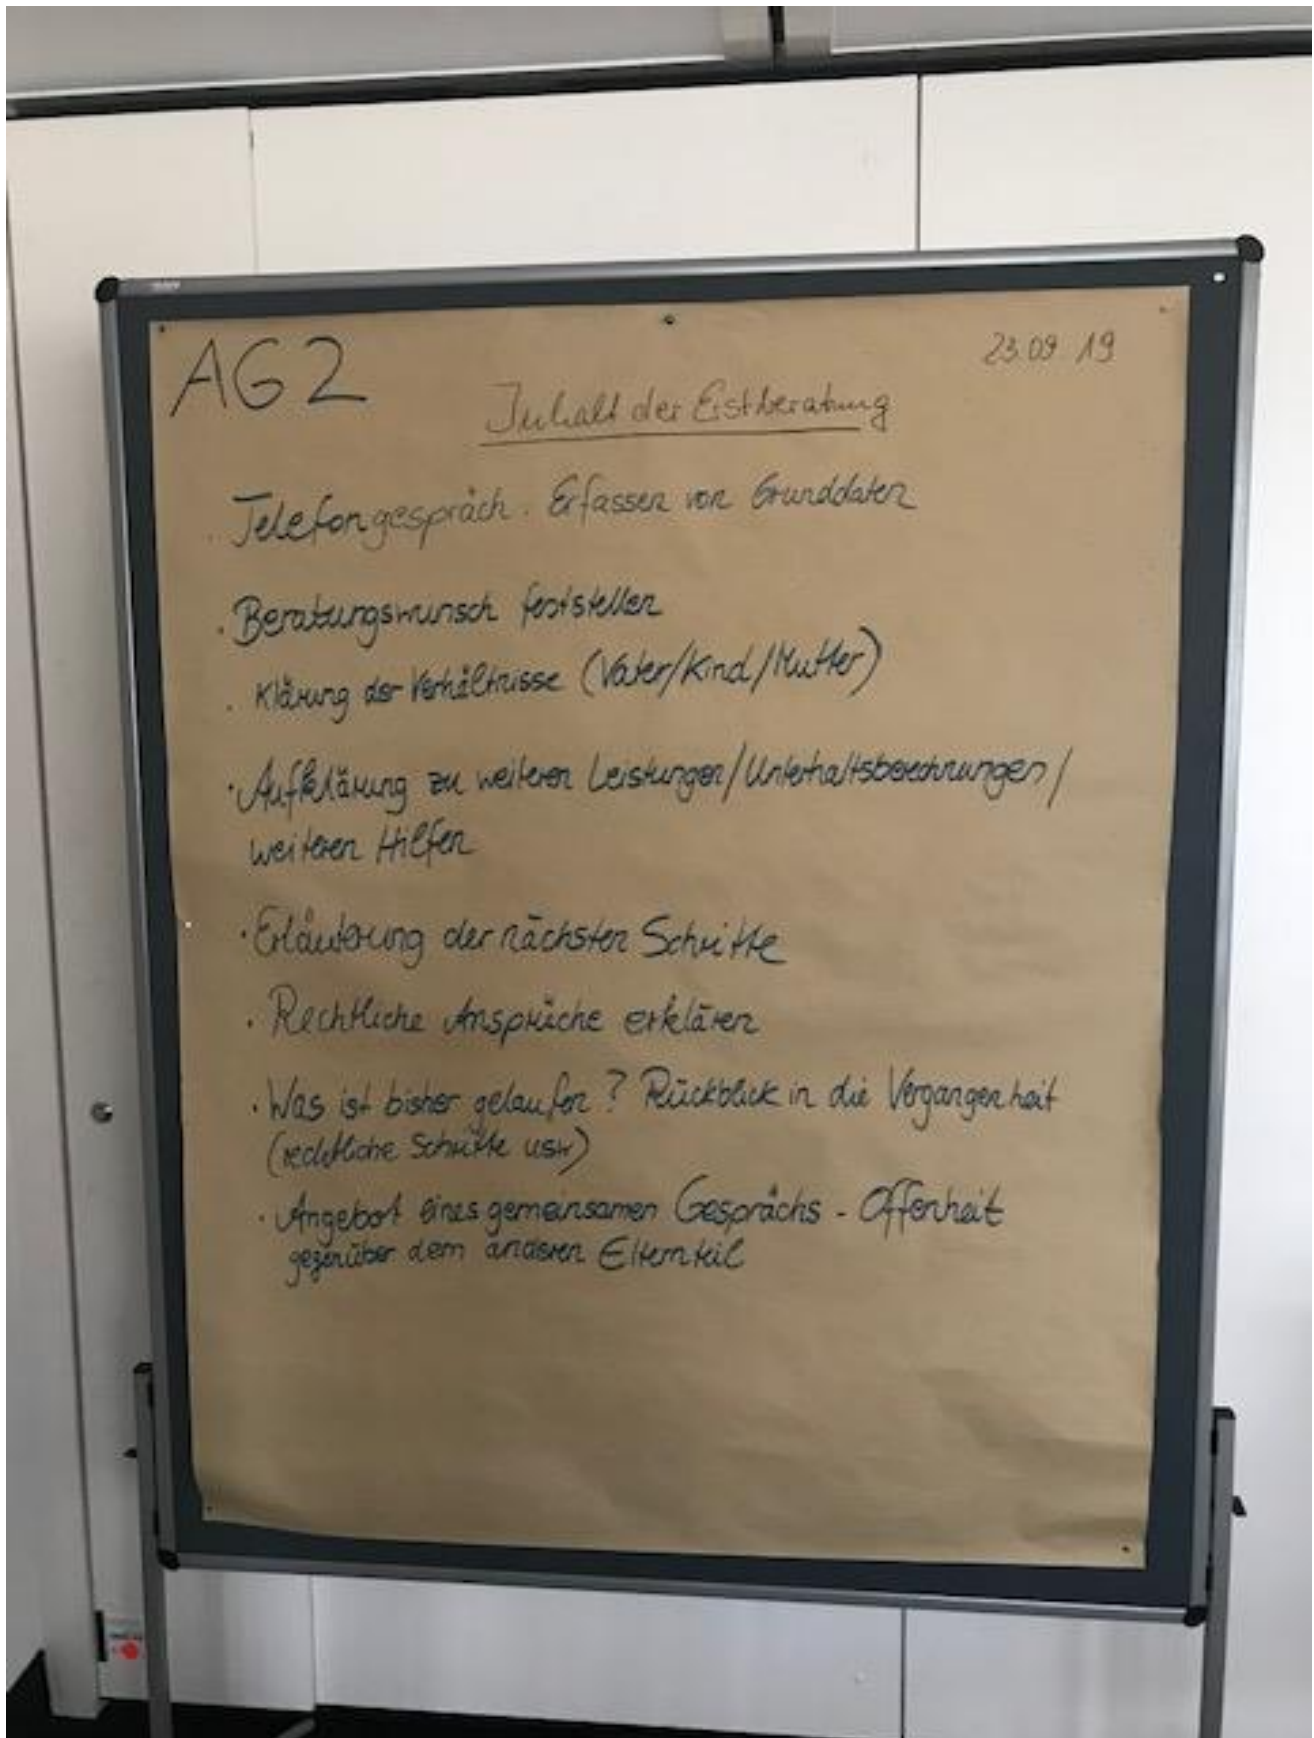 AG2
23.09 19
Inhalt der Erstberatung
· Telefongespräch. Erfassen von Grunddaten
· Beratungswunsch feststellen
· Klärung der Verhältnisse (Vater/Kind/Mutter)
· Aufklärung zu weiteren Leistungen/Unterhaltsberechnungen/
weiteren Hilfen
· Erläuterung der nächsten Schritte
· Rechtliche Ansprüche erklären
· Was ist bisher gelaufen? Rückblick in die Vergangenheit
(rechtliche Schritte usw)
· Angebot eines gemeinsamen Gesprächs - Offenheit
gegenüber dem anderen Elternteil